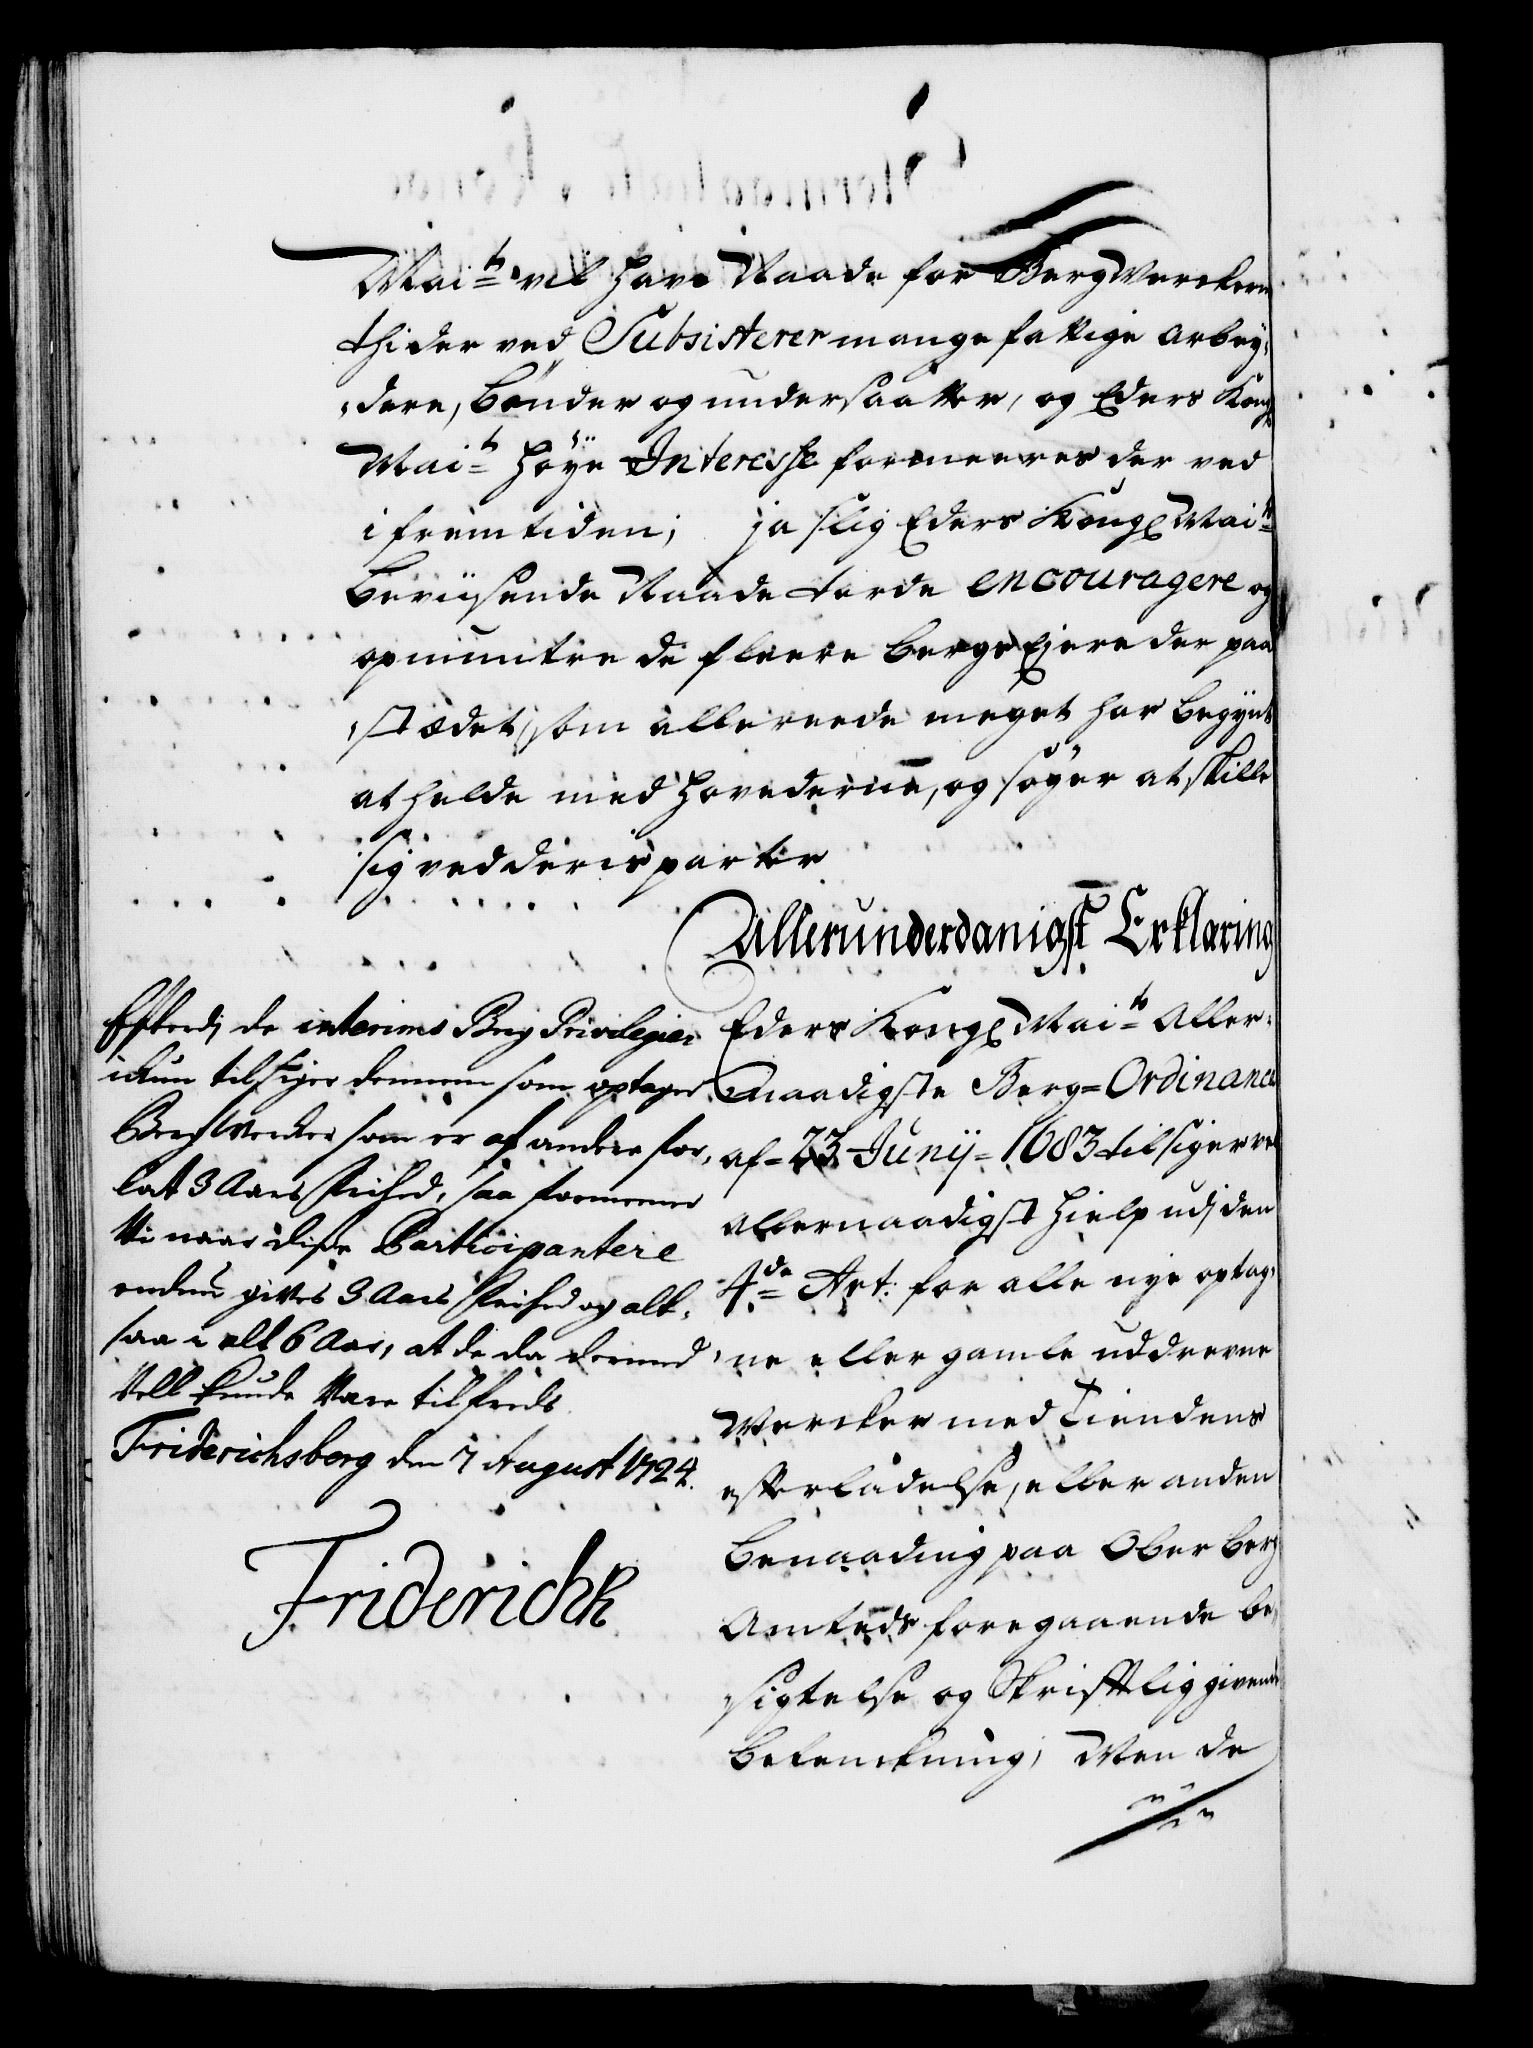 Mai:ts vil have Naade for Bergwerckerne
thi der ved Subsisterer mange fattige arbey-
dere, bønder og undersaatter, og Eders Kongl
Mai:ts høye Interesse formeeres der ved
i fremtiden; ja slig Eders Kongl Mai:ts
beviisende Naade torde encouragere og
opmuntre de fleere bergs Ejere der paa
stædet, som allereede meget har begynt
at helde med hovederne, og søger at skille
sig ved deris parter
Allerunderdanigst Erklæring
Eders Kongl Mai:ts Aller-
naadigste Berg-Ordinance
af 23 Junij 1683 tilsiger vel
allernaadigst hielp udj den
4de Art: for alle nye optag-
ne eller gamle uddrevne
Wercker med Tiendens
efterladelse, eller anden
benaading paa Ober berg
Amteds foregaaende be-
sigtelse og Skrifftlig givende
betenckning, Men de
Efterdj de interims Berg Privilegier
ickun tilsiger dennem som optager
BergWercker som er af andre for-
lat 3 Aars frihed, saa formeener
Vi naar disse Participantere
endnu gives 3 Aars frihed og alt-
saa i alt 6 Aar, at de da dermed
vell kunde være tilfreds.
Friderichsberg den 7 August 1724.
Friderich R